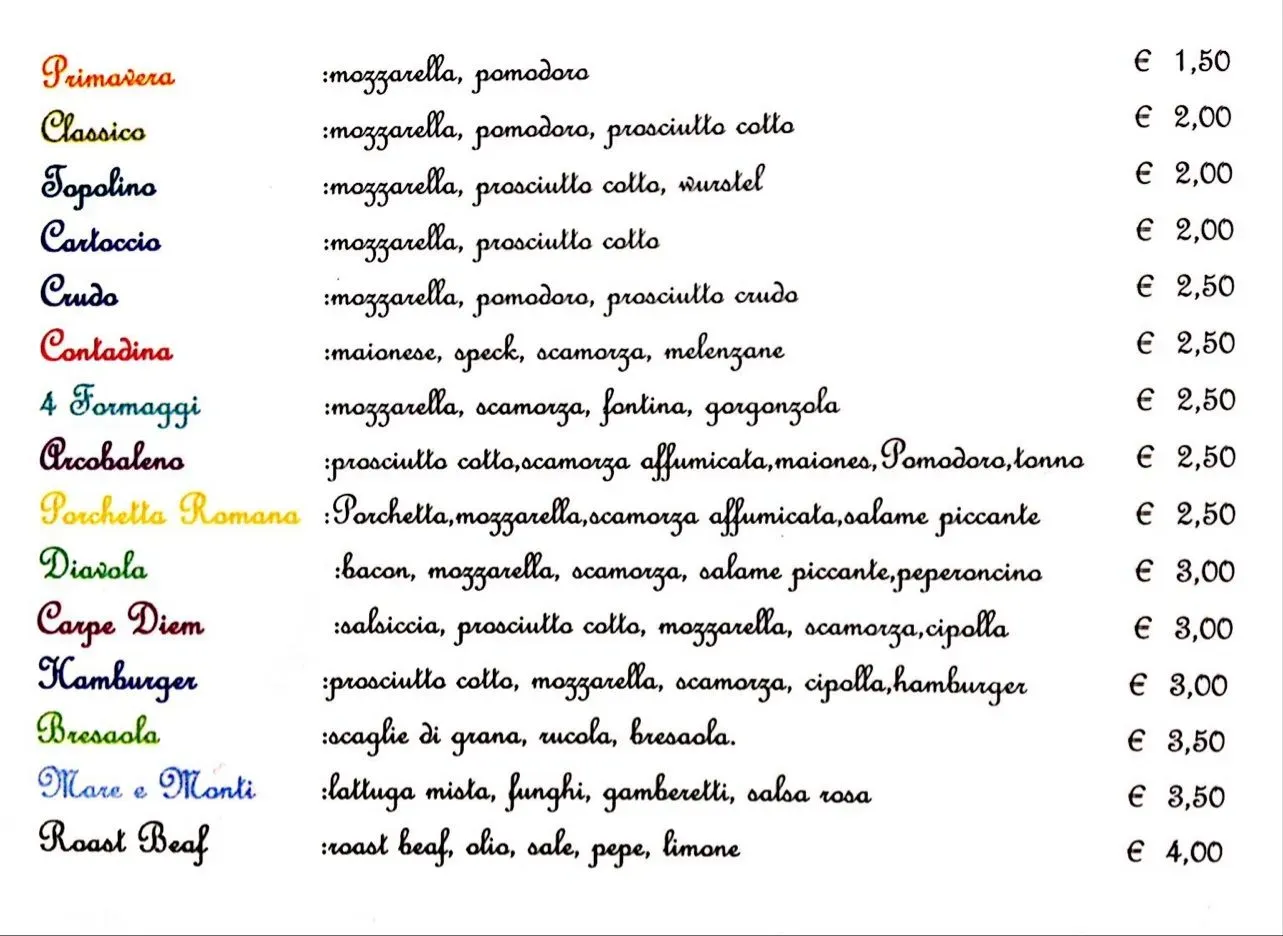 Primavera :mozzarella, pomodoro € 1,50
Classico :mozzarella, pomodoro, prosciutto cotto € 2,00
Topolino :mozzarella, prosciutto cotto, wurstel € 2,00
Cartoccio :mozzarella, prosciutto cotto € 2,00
Crudo :mozzarella, pomodoro, prosciutto crudo € 2,50
Contadina :maionese, speck, scamorza, melenzane € 2,50
4 Formaggi :mozzarella, scamorza, fontina, gorgonzola € 2,50
Arcobaleno :prosciutto cotto,scamorza affumicata,maiones,Pomodoro,tonno € 2,50
Porchetta Romana :Porchetta,mozzarella,scamorza affumicata,salame piccante € 2,50
Diavola :bacon, mozzarella, scamorza, salame piccante,peperoncino € 3,00
Carpe Diem :salsiccia, prosciutto cotto, mozzarella, scamorza,cipolla € 3,00
Hamburger :prosciutto cotto, mozzarella, scamorza, cipolla,hamburger € 3,00
Bresaola :scaglie di grana, rucola, bresaola. € 3,50
Mare e Monti :lattuga mista, funghi, gamberetti, salsa rosa € 3,50
Roast Beaf :roast beaf, olio, sale, pepe, limone € 4,00